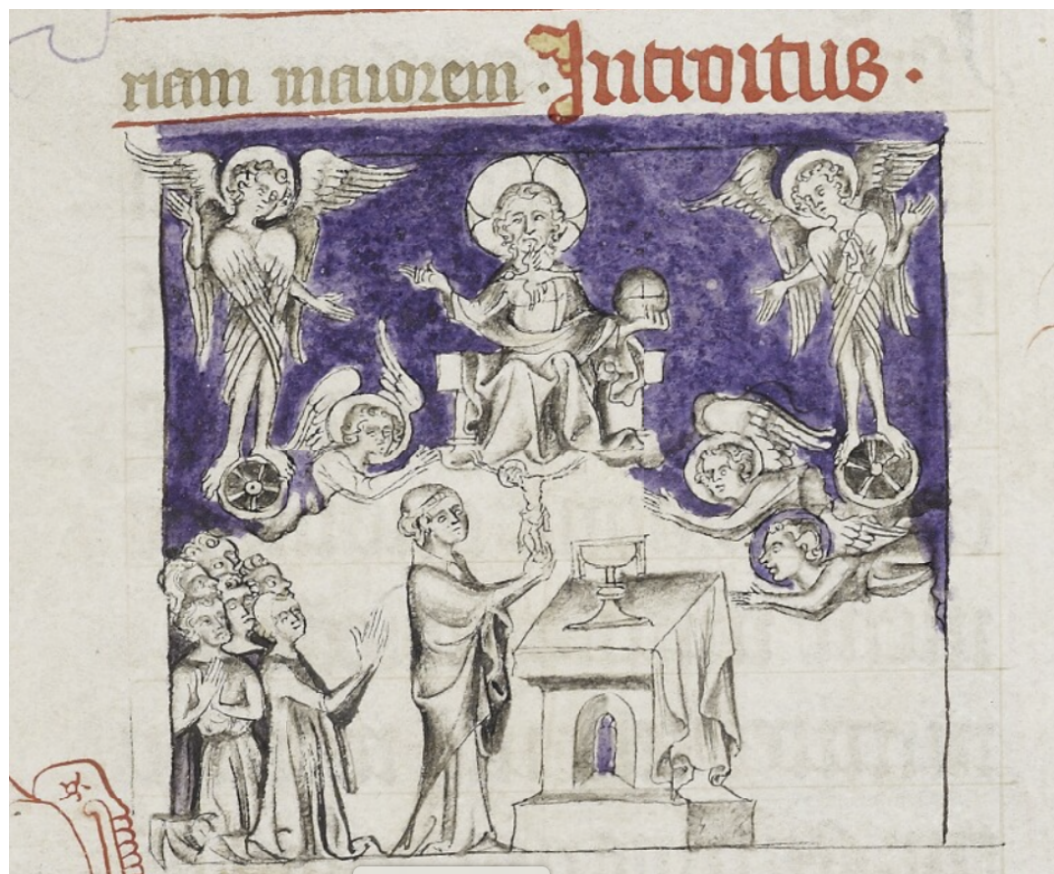 riam maiorem · Introitus ·